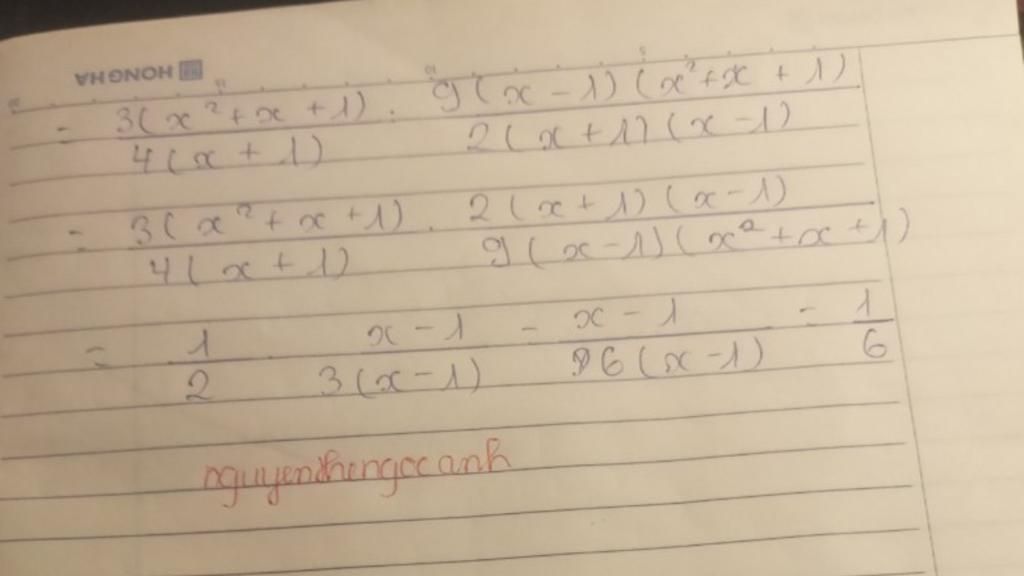 HONGHA
= 3(x² + x + 1) / 4(x + 1) : 9(x - 1)(x² + x + 1) / 2(x + 1)(x - 1)
= 3(x² + x + 1) / 4(x + 1) . 2(x + 1)(x - 1) / 9(x - 1)(x² + x + 1)
= 1 / 2 . x - 1 / 3(x - 1) = x - 1 / 6(x - 1) = 1 / 6
nguyenthingocanh